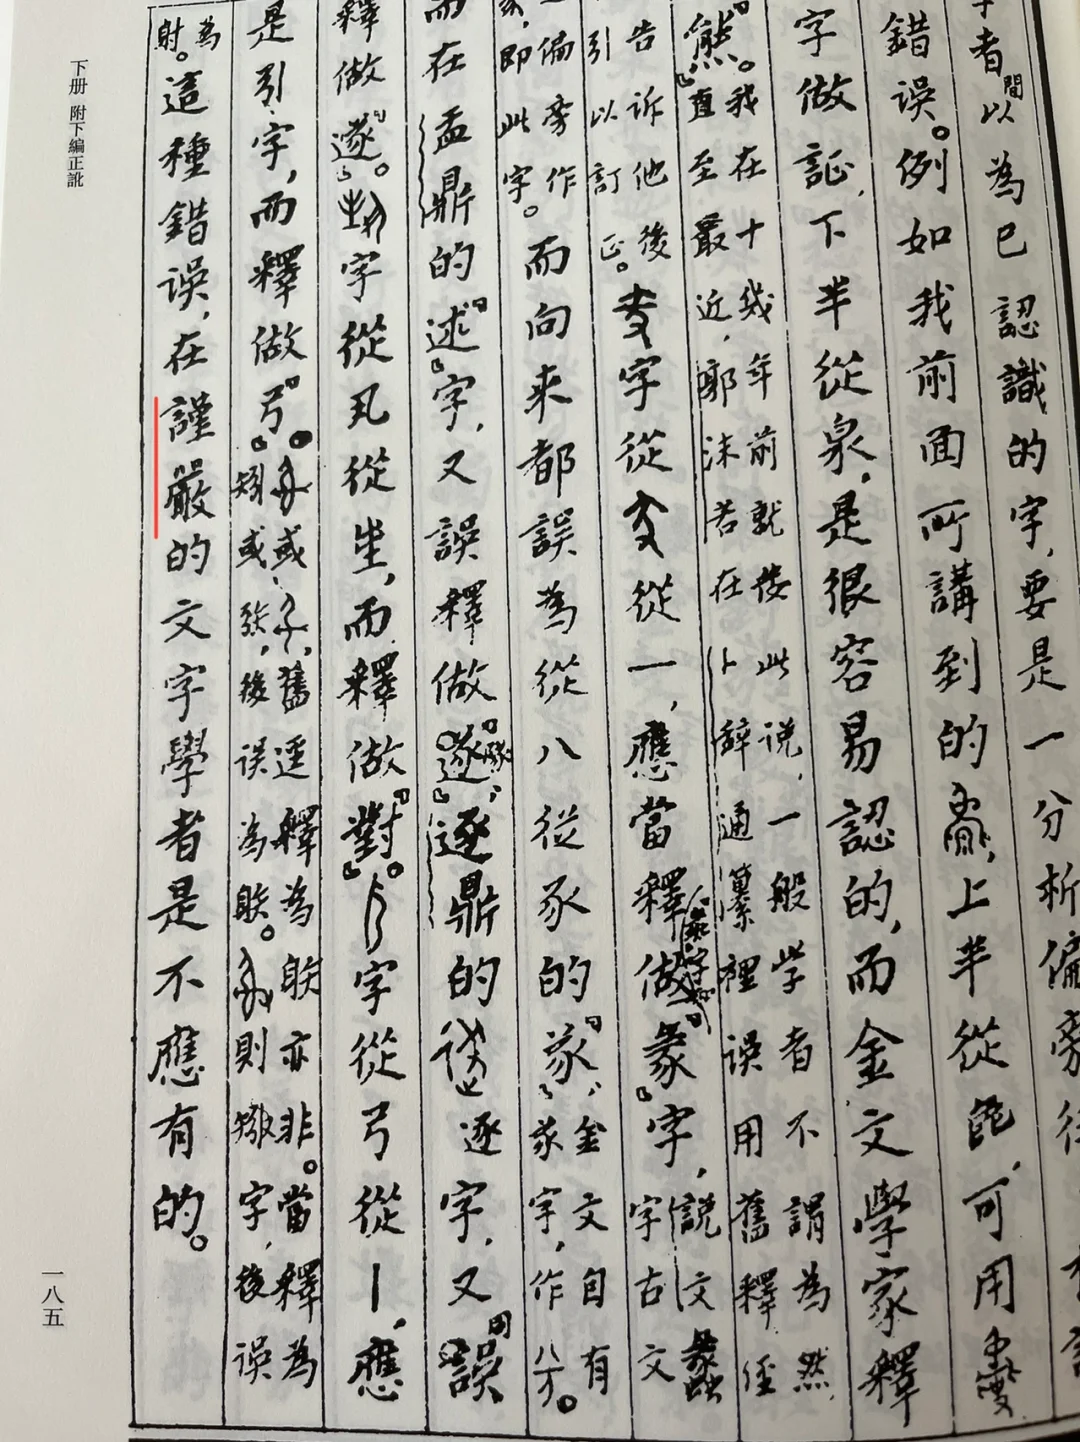 字者間以為已認識的字，要是一分析偏旁往
錯誤。例如我前面所講到的，上半從㲋，可用
字做証，下半從泉，是很容易認的，而金文學家釋
熊』。我在十幾年前就倡此说，一般学者不謂為然
直至最近，郭沫若在卜辭通纂裡误用舊釋，經
告诉他後
引以訂正。字從從一，應當釋做『彖』字，説文
字古文
偏旁作
即此字。而向来都誤為從八從豕的『㒸』，金文自有
㒸字，作
而在盂鼎的『述』字，又誤釋做『遂』，逐鼎的逐字，又誤
釋做『遂』。字從丮從坐，而釋做『對』。字從弓從丨，應
是引字，而釋做『弓』。或，舊逕釋為䏈亦非。當釋為
或弞，後误為䏈。則字，後误
為
射。這種錯误，在謹嚴的文字學者是不應有的。
下册 附下編正訛
一八五